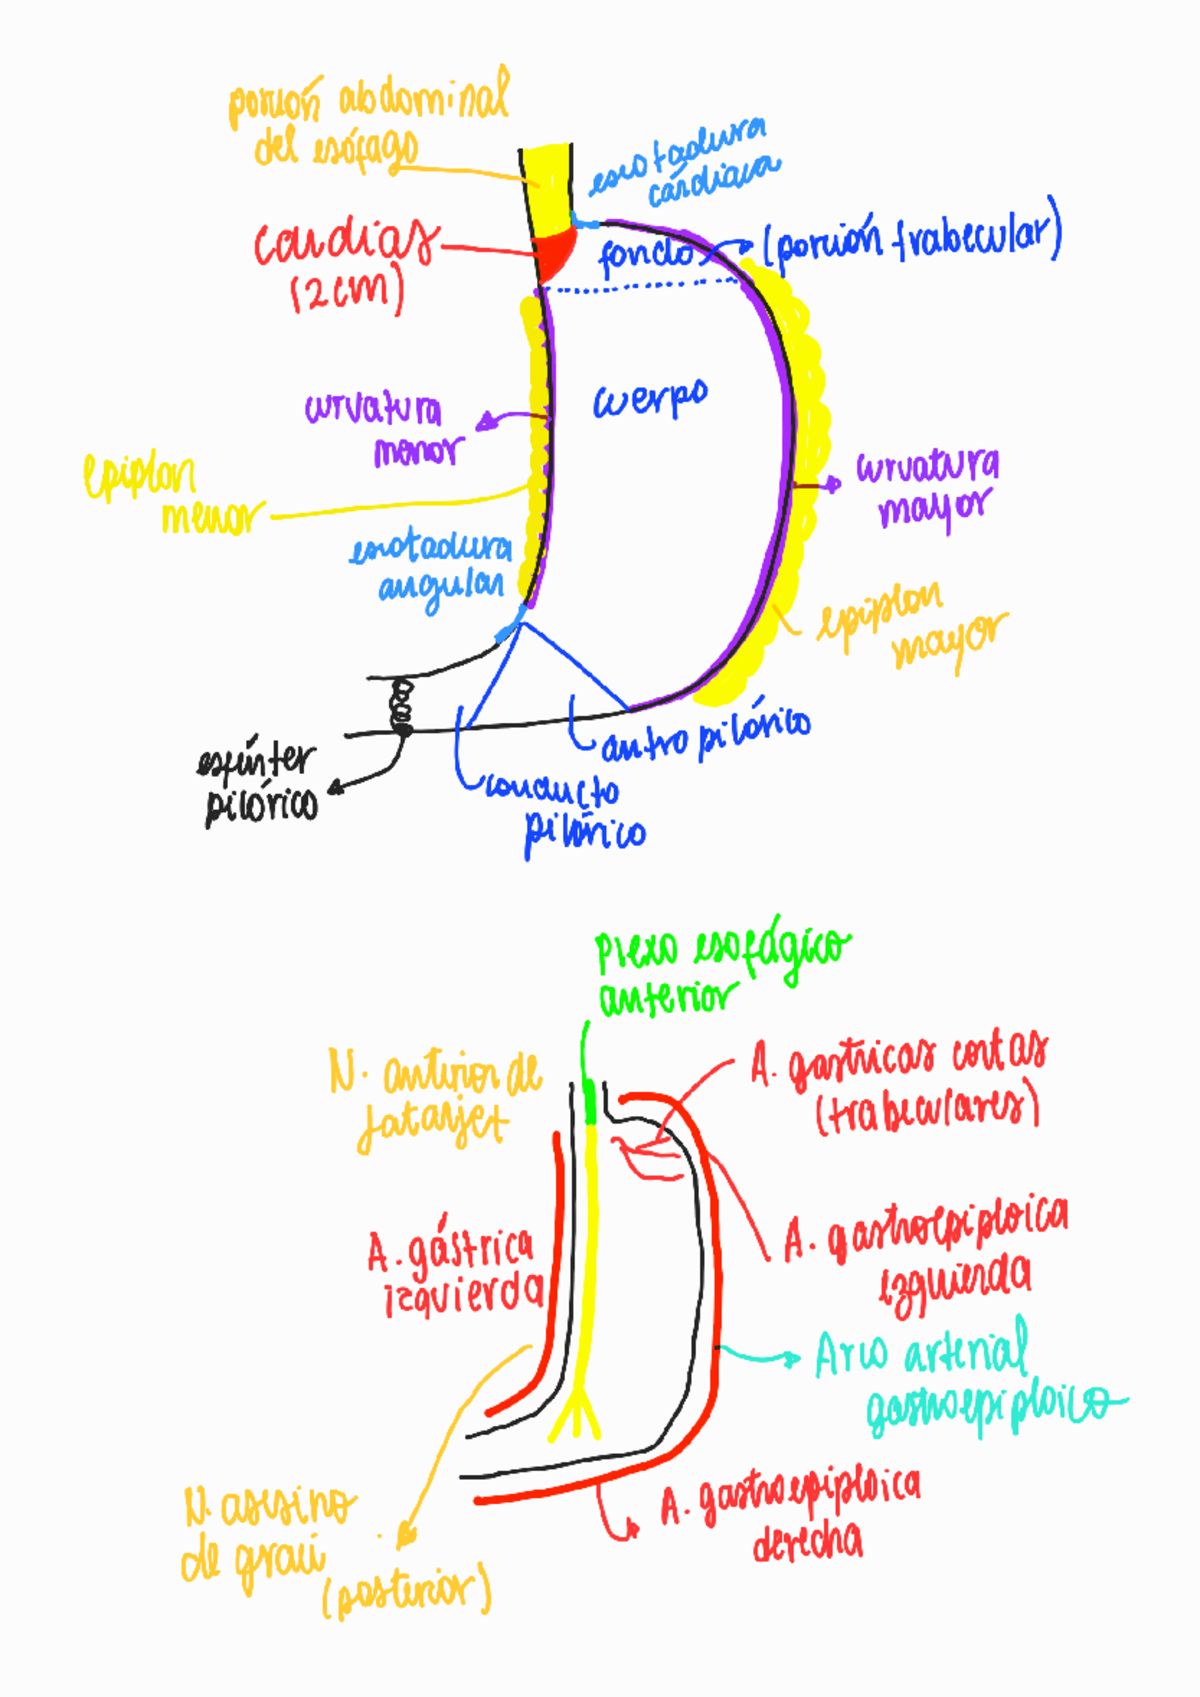 porción abdominal
del esófago
escotadura
cárdiaca
cardias
(2cm)
fondo
(porción trabecular)
curvatura
menor
cuerpo
epiplon
menor
curvatura
mayor
escotadura
angular
epiplon
mayor
esfínter
pilórico
antro pilórico
conducto
pilórico
Plexo esofágico
anterior
N. anterior de
Latarjet
A. gastricas cortas
(trabeculares)
A. gástrica
izquierda
A. gastroepiploica
izquierda
Arco arterial
gastroepiploico
N. asesino
de grassi
(posterior)
A. gastroepiploica
derecha